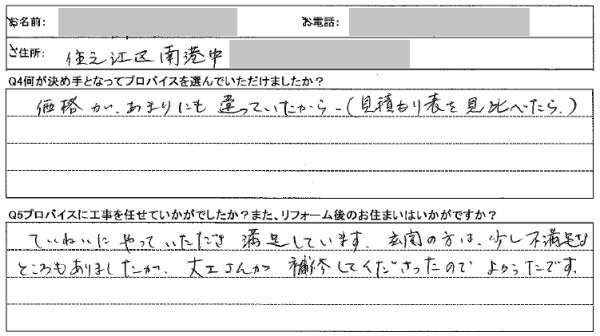 お名前: お電話:
ご住所: 住之江区南港中
Q4何が決め手となってプロバイスを選んでいただけましたか？
価格が、あまりにも違っていたから。(見積もり表を見比べたら。)
Q5プロバイスに工事を任せていかがでしたか？また、リフォーム後のお住まいはいかがですか？
ていねいにやっていただき満足しています。玄関の方は、少し不満足な
ところもありましたが、大工さんが補修してくださったのでよかったです。